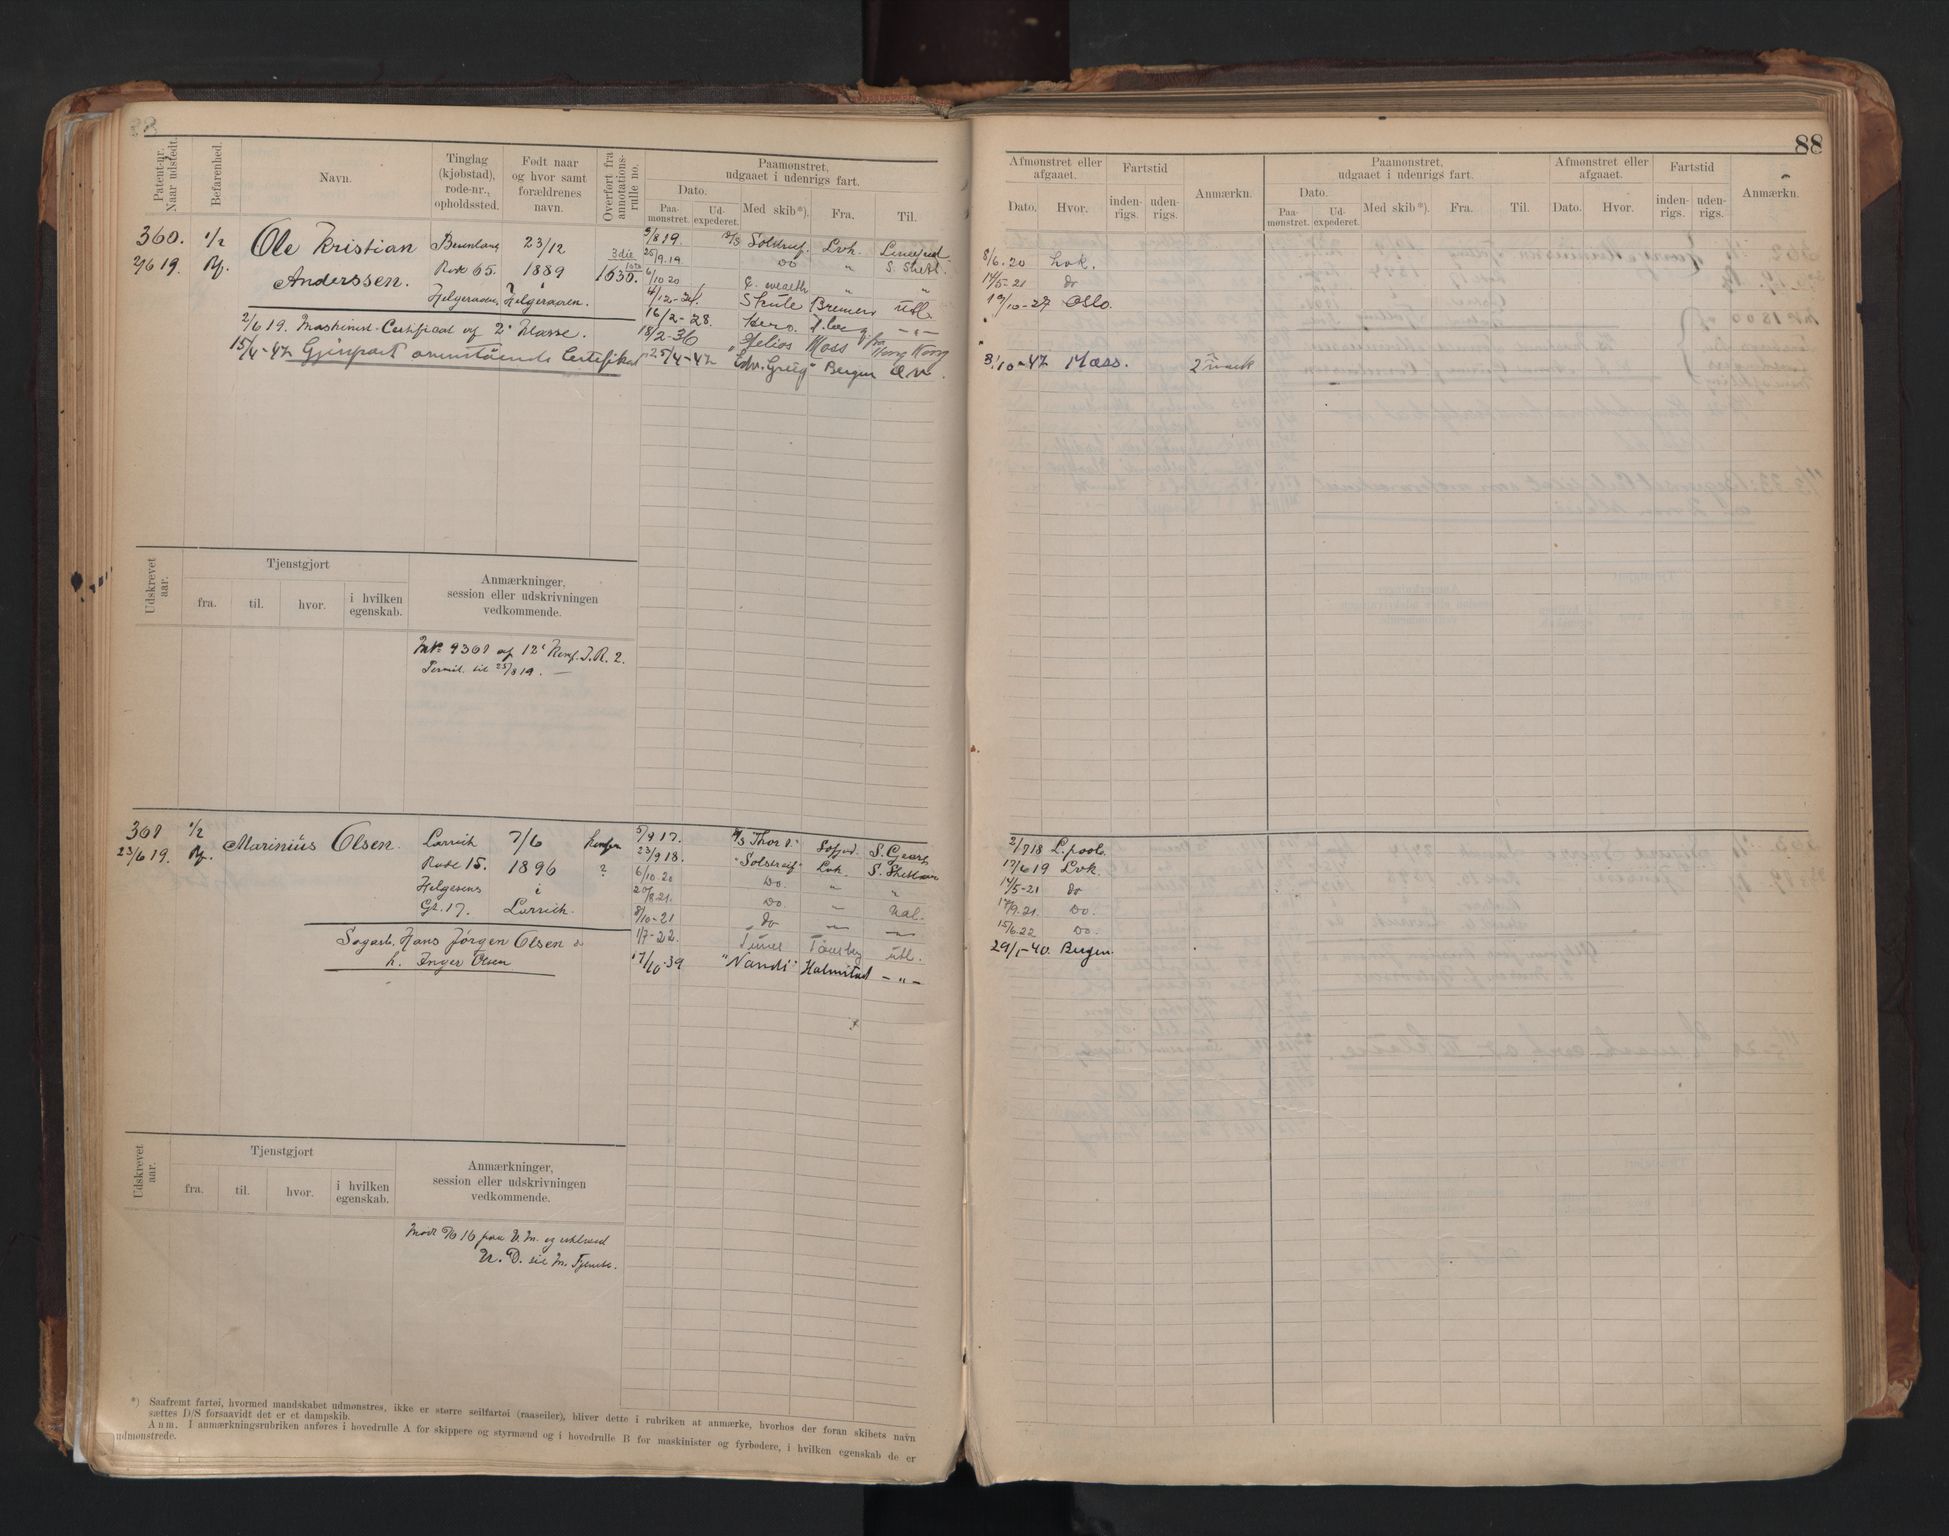 88
88
Patent-nr. Naar udstedt.
Befarenhed.
Navn.
Tinglag (kjøbstad), rode-nr., opholdssted.
Født naar og hvor samt forældrenes navn.
Overført fra annotations-rulle no.
Paamønstret, udgaaet i udenrigs fart.
Dato.
Paa-mønstret.
Ud-expederet.
Med skib*).
Fra.
Til.
Afmønstret eller afgaaet.
Fartstid
Dato.
Hvor.
inden-rigs.
uden-rigs.
Anmærkn.
Paamønstret, udgaaet i udenrigs fart.
Dato.
Paa-mønstret.
Ud-expederet.
Med skib*).
Fra.
Til.
Afmønstret eller afgaaet.
Dato.
Hvor.
Fartstid
inden-rigs.
uden-rigs.
Anmærkn.
360. 1/2 Ole Kristian 23/12
2/6 19. Anderssen. Rode 65. 1889 1630.
Helgeroaen. Helgeroaen.
2/6 19. Maskinist-Certificat af 2. Klasse.
15/4-47 Gjenpart ovenstående Certifikat
5/8 19. Solstreif Lvk.
25/9.19 Do " S. Shetl.
6/10 20 " "
4/12-24. Skule Bremen Utl.
16/2-28. Hero.
18/2-36 "Helios Moss fra Hong Kong
25/4-47 Edv. Grieg" Bergen
8/6. 20 Lvk.
14/5-21 do
19/10-27 Oslo
31/10-47 Mæss. 2 mask
Udskrevet aar.
Tjenstgjort
fra.
til.
hvor.
i hvilken egenskab.
Anmærkninger, session eller udskrivningen vedkommende.
12' Komp. I.R. 2.
til 25/8 19.
361 1/2 Marinius Olsen. Larvik 7/6
23/6 19. Rode 15. 1896 ?
Helgesens i
Gt. 17. Larvik.
Sagarb. Hans Jørgen Olsen
h. Inger Olsen
5/9 17. M/S Thor I.
23/9 18. "Solstreif Lvk.
6/10. 20 Do. " "
20/8.21. Do. "
8/10-21 do
1/7-22. Tunis Tønsberg utl.
17/10-39 "Nandi" Halmstad - " -
2/7 18 L.pool.
17/6 19 Lvk.
14/5-21 do
17/9.21. Do.
15/6.22 Do.
29/1-40. Bergen.
Udskrevet aar.
Tjenstgjort
fra.
til.
hvor.
i hvilken egenskab.
Anmærkninger, session eller udskrivningen vedkommende.
Mødt 16 paa V. M. og
U. D. til M.
*) Saafremt fartøi, hvormed mandskabet udmønstres, ikke er større seilfartøi (raaseiler), bliver dette i rubriken at anmærke, hvorhos der foran skibets navn
sættes D/S forsaavidt det er et dampskib.
Anm. I anmærkningsrubriken anføres i hovedrulle A for skippere og styrmænd og i hovedrulle B for maskinister og fyrbødere, i hvilken egenskab de er
udmønstrede.